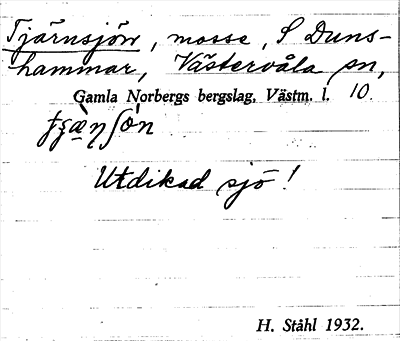 Tjärnsjön, mosse, S Duns-
hammar, Västervåla sn,
Gamla Norbergs bergslag, Västm. l. 10.
Utdikad sjö!
H. Ståhl 1932.